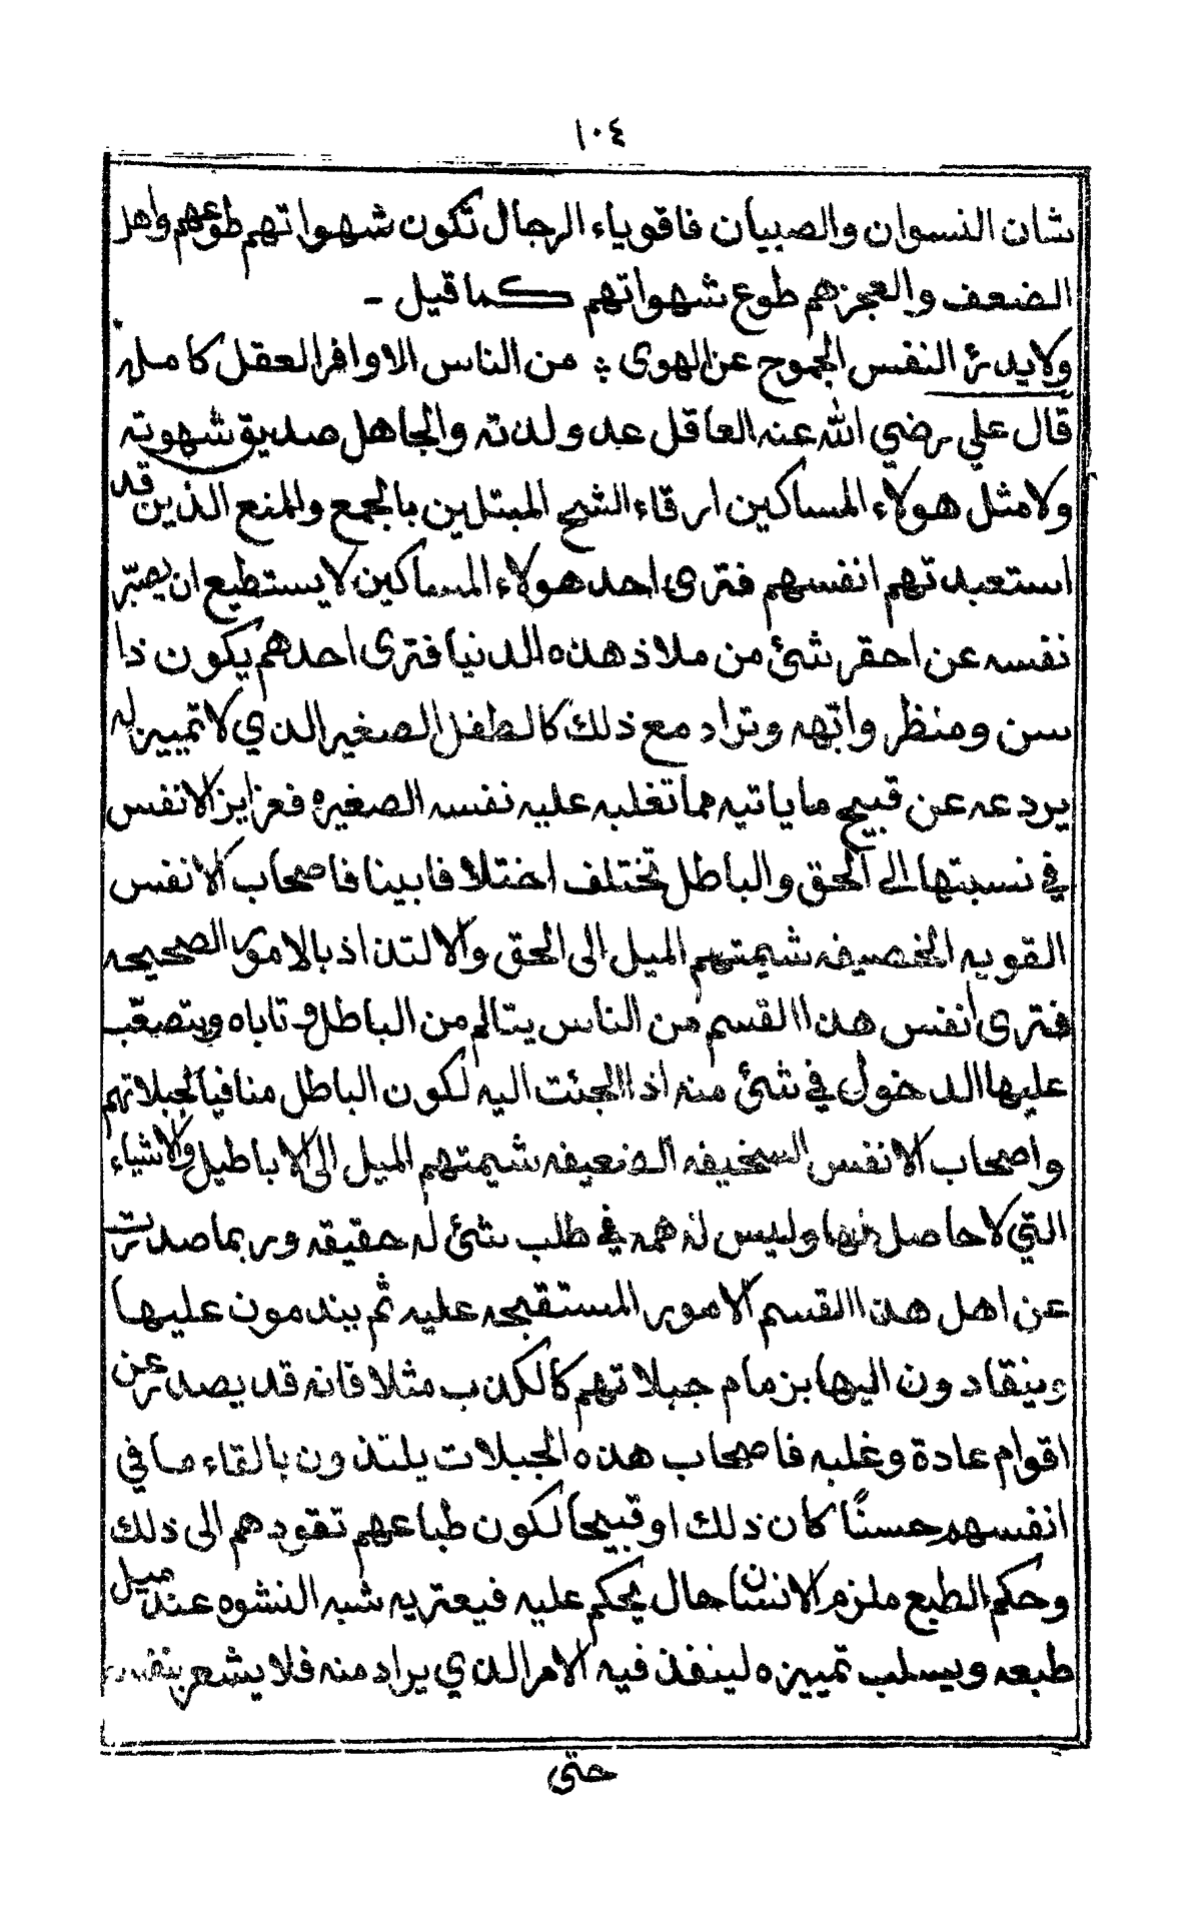 ١٠٤
شان النسوان والصبيان فاقوياء الرجال تكون شهواتهم طوعهم واهل
الضعف والعجزهم طوع شهواتهم كما قيل -
ولايدرئ النفس الجموح عن الهوى ؛ من الناس الا وافر العقل كامله
قال علي رضي الله عنه العاقل عدو لدته والجاهل صديق شهوته
ولا مثل هولاء المساكين ارقاء الشح المبتلين بالجمع والمنع الذين قد
استعبدتهم انفسهم فترى احد هولاء المساكين لا يستطيع ان يصبّر
نفسه عن احقر شئ من ملاذ هذه الدنيا فترى احدهم يكون ذا
سن ومنظر وابّهه وتراد مع ذلك كالطفل الصغير الذي لا تمييز له
يردعه عن قبيح ما ياتيه مما تغلبه عليه نفسه الصغيره فغرايز الانفس
في نسبتها الى الحق والباطل تختلف اختلافا بينا فاصحاب الانفس
القويه الخصيفه شيمتهم الميل الى الحق والالتذاذ بالامور الصحيحه
فترى انفس هذا القسم من الناس يتالم من الباطل وتاباه ويتصعّب
عليها الدخول في شئ منه اذا الجئت اليه لكون الباطل منافياً لجبلاتهم
واصحاب الانفس السخيفه الضعيفه شيمتهم الميل الى الاباطيل والاشياء
التي لا حاصل لها وليس له همه في طلب شئ له حقيقه وربما صدرت
عن اهل هذا القسم الامور المستقبحه عليه ثم يندمون عليها
وينقادون اليها بزمام جبلاتهم كالكذب مثلا فانه قد يصدر عن
اقوام عادة وغلبه فاصحاب هذه الجبلات يلتذون بالقاء ما في
انفسهم حسنًا كان ذلك او قبيحاً لكون طباعهم تقودهم الى ذلك
وحكم الطبع ملزم الانسان حال يحكم عليه فيعتريه شبه النشوه عند ميل
طبعه ويسلب تمييزه لينفذ فيه الامر الذي يراد منه فلا يشعر بنفسه
حتى